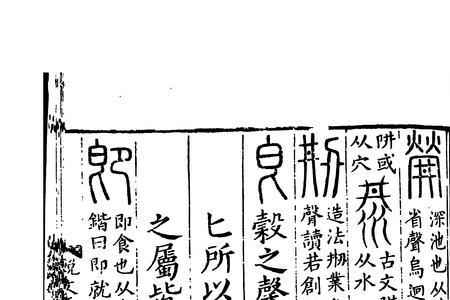 深池也从
省聲烏迥
阱或
从穴
古文阱
从水
㓝 造法㓝業
聲讀若創
皀 穀之馨
匕所以
之屬皆
即 即食也从
鍇曰即就
說文